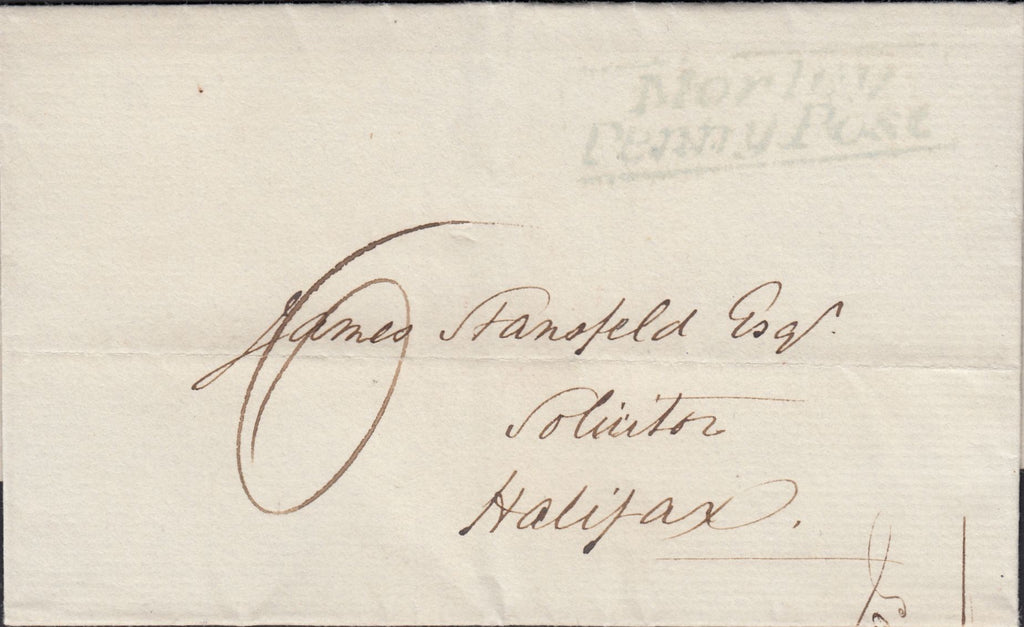 Morley
Penny Post
6
James Stansfeld Esqr.
Solicitor
Halifax.